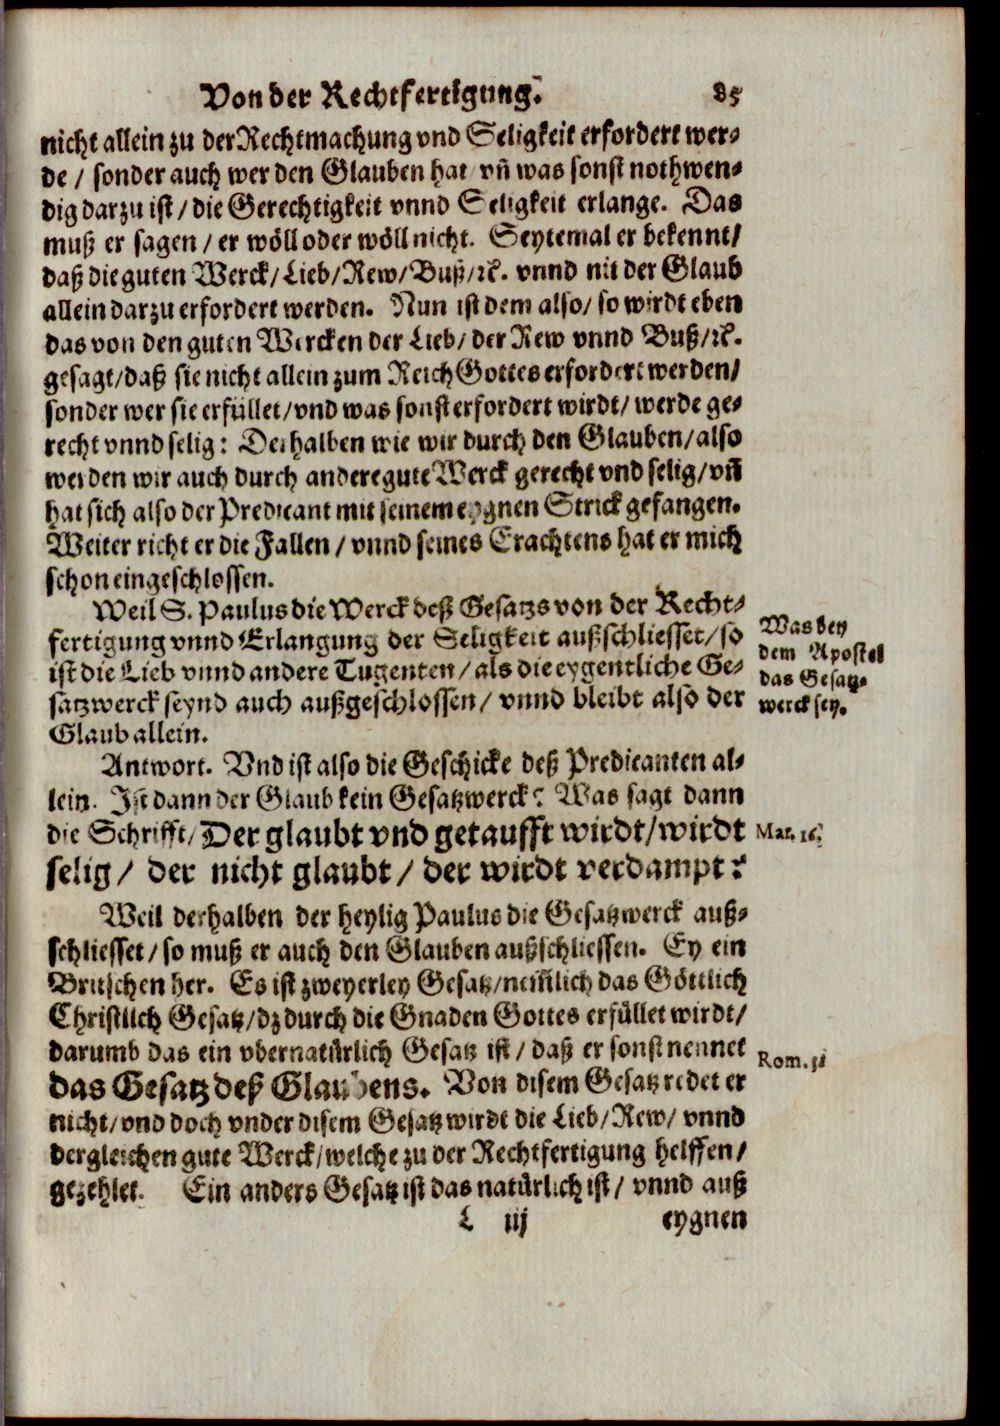 Von der Rechtfertigung. 85
nicht allein zu der Rechtmachung vnd Seligkeit erfordert wer⸗
de / sonder auch wer den Glauben hat vñ was sonst nothwen⸗
dig darzu ist / die Gerechtigkeit vnnd Seligkeit erlange. Das
muß er sagen / er wöll oder wöll nicht. Seytemal er bekennt /
daß die guten Werck / Lieb / Rew / Buß / ꝛc. vnnd nit der Glaub
allein darzu erfordert werden. Nun ist dem also / so wirdt eben
das von den guten Wercken der Lieb / der Rew vnnd Buß / ꝛc.
gesagt / daß sie nicht allein zum Reich Gottes erfordert werden /
sonder wer sie erfüllet / vnd was sonst erfordert wirdt / werde ge⸗
recht vnnd selig: Derhalben wie wir durch den Glauben / also
werden wir auch durch andere gute Werck gerecht vnd selig / vñ
hat sich also der Predicant mit seinem eygnen Strick gefangen.
Weiter richt er die Fallen / vnnd seines Erachtens hat er mich
schon eingeschlossen.
Weil S. Paulus die Werck deß Gesatzs von der Recht⸗
fertigung vnnd Erlangung der Seligkeit außschliesset / so
ist die Lieb vnnd andere Tugenten / als die eygentliche Ge⸗
satzwerck seynd auch außgeschlossen / vnnd bleibt also der
Glaub allein.
Was bey
dem Apostel
das Gesatz⸗
werck sey.
Antwort. Vnd ist also die Geschicke deß Predicanten al⸗
lein. Ist dann der Glaub kein Gesatzwerck? Was sagt dann
die Schrifft / Der glaubt vnd getaufft wirdt / wirdt
selig / der nicht glaubt / der wirdt verdampt?
Mar. 16.
Weil derhalben der heylig Paulus die Gesatzwerck auß⸗
schliesset / so muß er auch den Glauben außschliessen. Ey ein
Brüschen her. Es ist zweyerley Gesatz / nemlich das Göttlich
Christlich Gesatz / dz durch die Gnaden Gottes erfüllet wirdt /
darumb das ein vbernatürlich Gesatz ist / daß er sonst nennet
das Gesatz deß Glaubens. Von disem Gesatz redet er
nicht / vnd doch vnder disem Gesatz wirdt die Lieb / Rew / vnnd
dergleichen gute Werck / welche zu der Rechtfertigung helffen /
gezehlet. Ein anders Gesatz ist das natürlich ist / vnnd auß
Rom. 3.
L iij eygnen